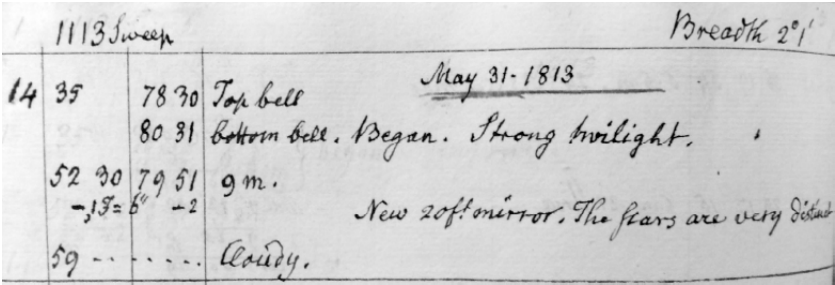 1113 Sweep Breadth 2° 1'
May 31 - 1813
14 35 78 30 Top bell
80 31 bottom bell. Began. Strong twilight.
52 30 79 51 9 m.
-,15 = 6" -2 New 20ft mirror. The stars are very distinct
59 - - - - - - - - Cloudy.